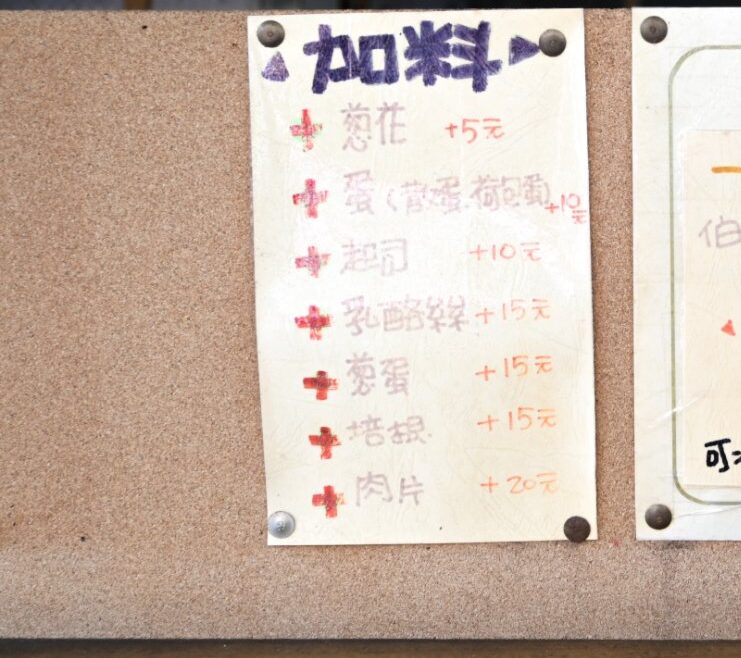 加料
+ 蔥花 +5元
+ 蛋(蔥蛋.荷包蛋)+10元
+ 起司 +10元
+ 乳酪絲 +15元
+ 蔥蛋 +15元
+ 培根 +15元
+ 肉片 +20元
伯
可